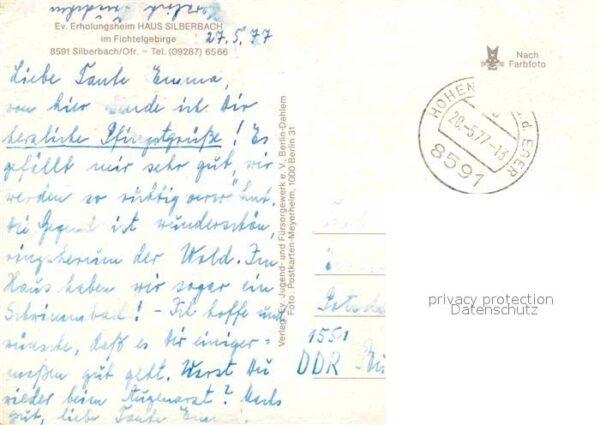 Ev. Erholungsheim HAUS SILBERBACH
im Fichtelgebirge
8591 Silberbach/Ofr. – Tel. (09287) 6566
27.5.77
Nach
Farbfoto
Liebe Tante Emma,
von hier sende ich Dir
herzliche Pfingstgrüße! Es
gefällt mir sehr gut, wir
werden so richtig verwöhnt,
die Gegend ist wunderschön,
ringsherum der Wald. Im
Haus haben wir sogar ein
Schwimmbad! – Ich hoffe und
wünsche, daß es Dir einiger-
maßen gut geht. Warst Du
wieder beim Augenarzt? Machs
gut, liebe Tante
Verlag: Ev. Jugend- und Fürsorgewerk e. V., Berlin-Dahlem
Foto: Postkarten-Meyerheim, 1000 Berlin 31
HOHEN EGER
28.-5.77-13
8591
1551
DDR
privacy protection
Datenschutz